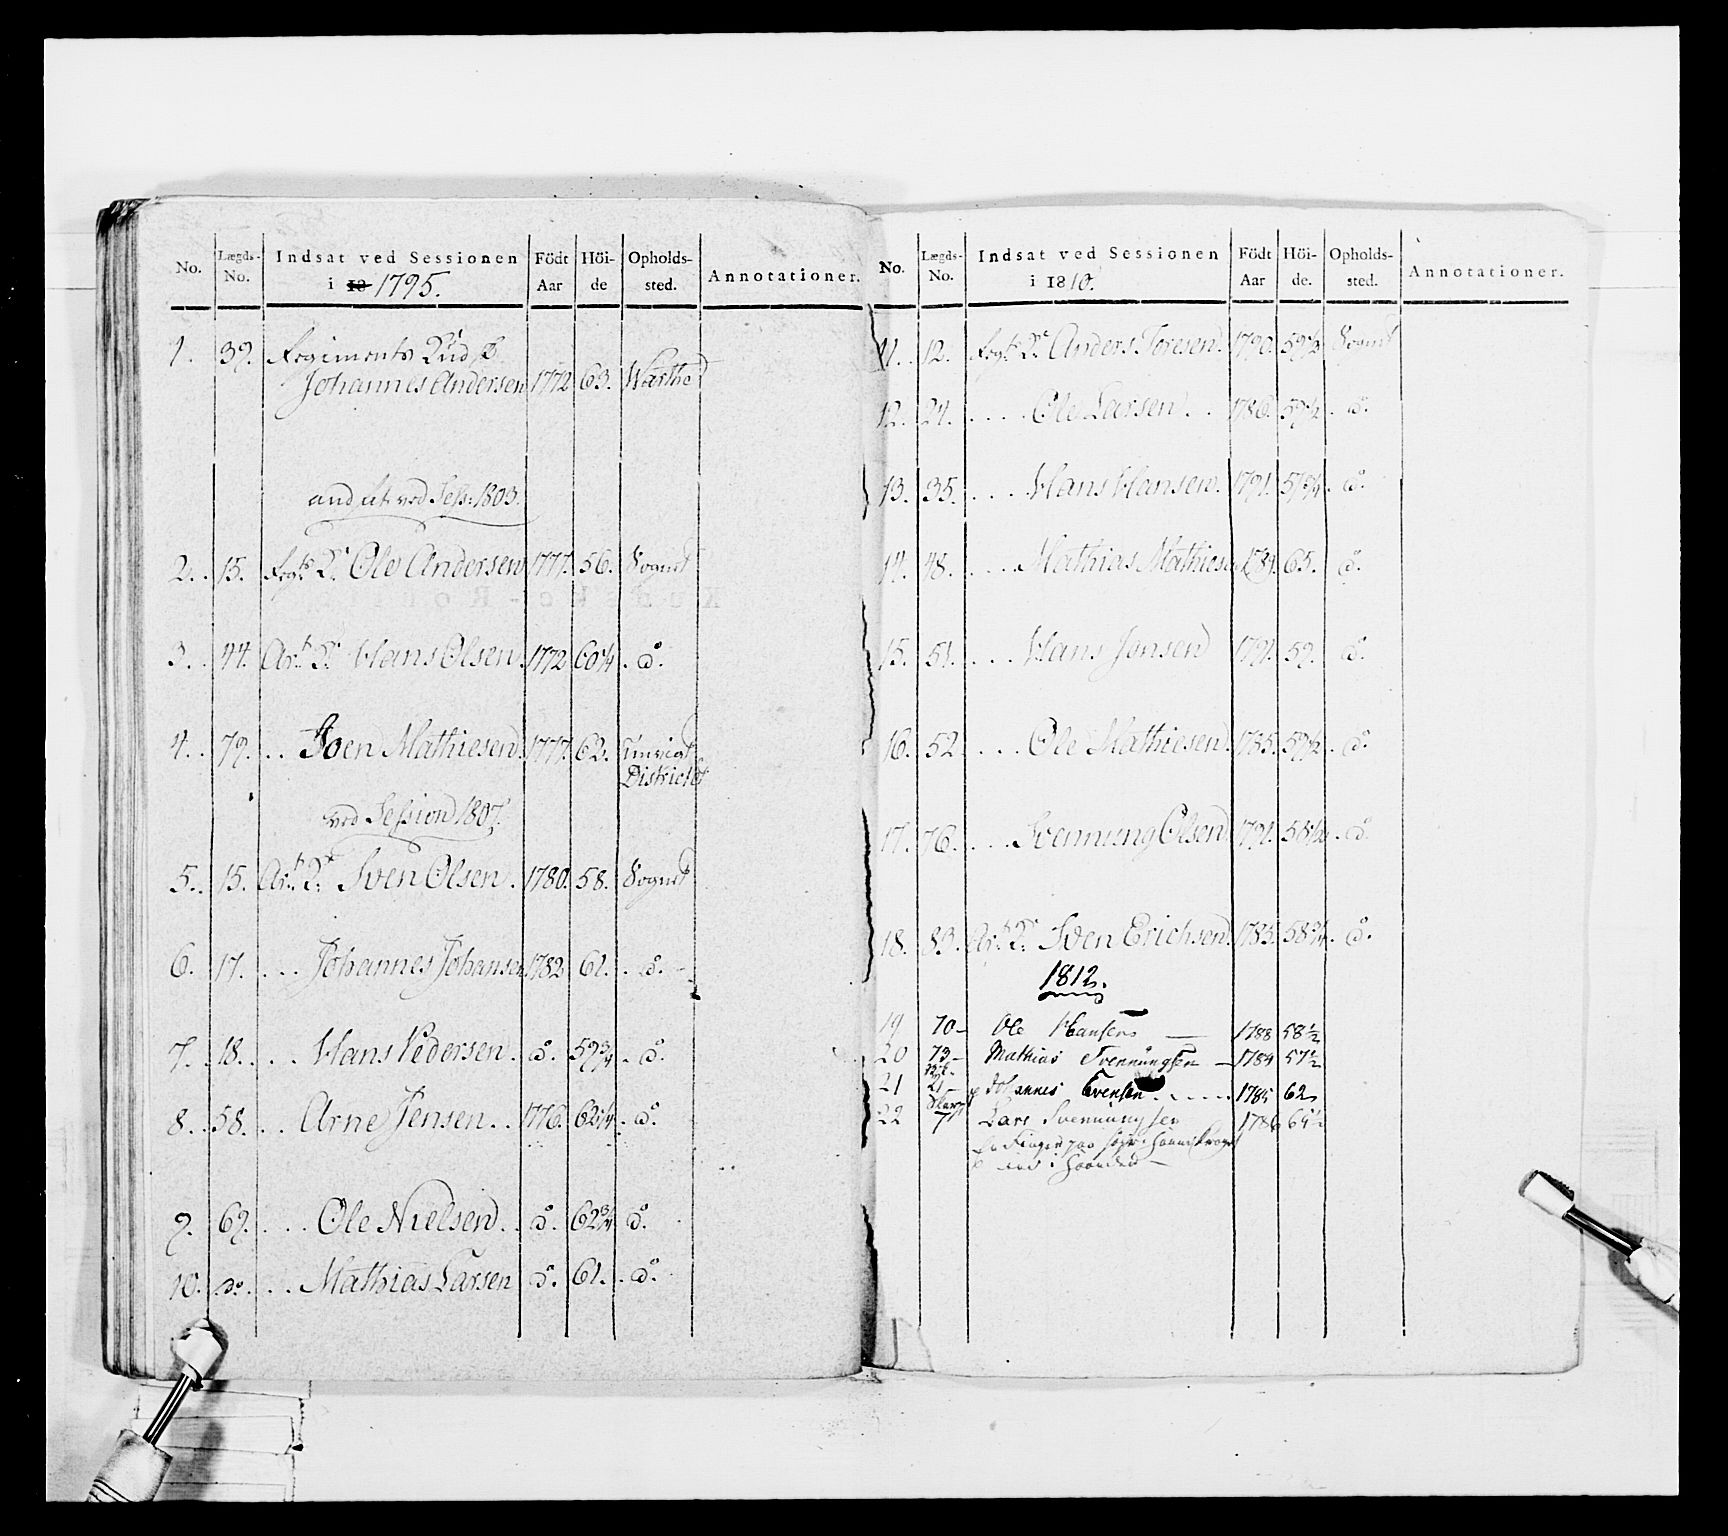 No. Lægds-No. Indsat ved Sessionen i 18 1795. Födt Aar Höi-de Opholds-sted. Annotationer.
1. 39. Regiments
Johannes Andersen 1772 63.
ved Sess: 1803.
2. 15. Ole Andersen 1777. 56. Sognet
3. 44. Hans Olsen. 1772 60 1/4 do.
4. 79. Soen Mathiesen. 1777. 62.
Districtet
ved Session 1807.
5. 15. Sven Olsen. 1780. 58. Sognet
6. 17. Johannes Johansen 1782 61. do.
7. 18. Hans Pedersen. do. 59 3/4 do.
8. 58. Arne Jensen. 1776. 62 1/4 do.
9. 69. Ole Nielsen. do. 62 3/4 do.
10. do. Mathias Larsen do. 61. do.
No. Lægds-No. Indsat ved Sessionen i 1810. Födt Aar Höi-de. Opholds-sted. Annotationer.
11. 12. Anders Toresen. 1790. 59 1/2 Sognet
12. 24. Ole Larsen. 1786. 59 1/2 do.
13. 35. Hans Hansen. 1791. 57 3/4 do.
14. 48. Mathias Mathiesen 65. do.
15. 51. Hans Jonsen 1791. 59. do.
16. 52 Ole Mathiesen. 1785. 59 1/2 do.
17. 76. Svennung Olsen 1791. 58 1/2 do.
18. 83. Sven Erichsen. 1785. 58 3/4 do.
1812.
19 70 Ole Hansen 1788 58 1/2
20 73 Mathias Svennungsen 1789 57 1/2
21 21 Johannes Evensen 1785 62
22 7 Lars Svennungsen 1786 61 1/2